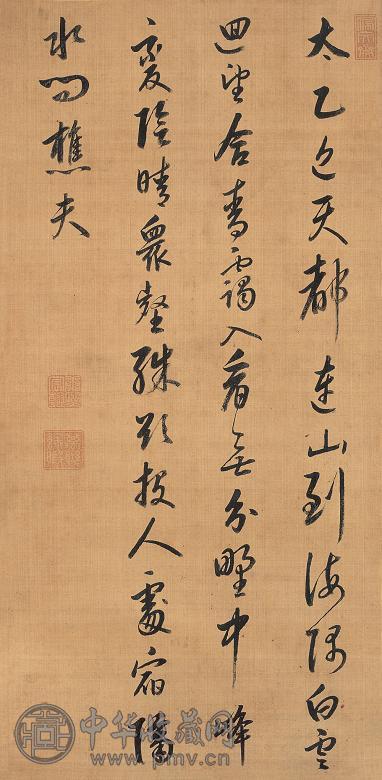 太乙近天都連山到海隅白雲
迴望合青靄入看無分野中峰
變陰晴衆壑殊欲投人處宿隔
水問樵夫
中华收藏网
www.pmv.cn